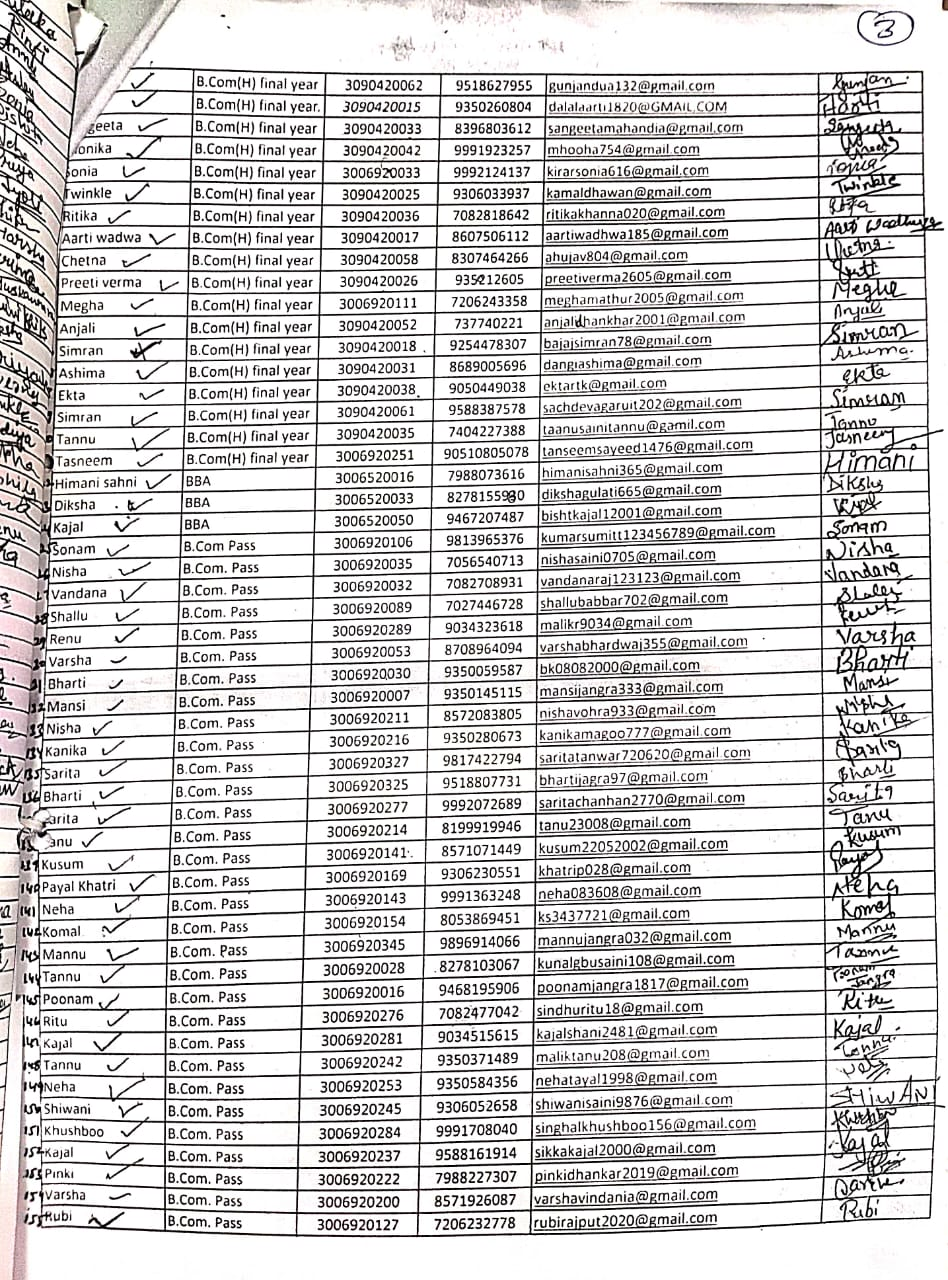 3
B.Com(H) final year 3090420062 9518627955 gunjandua132@gmail.com Gunjan
B.Com(H) final year. 3090420015 9350260804 dalalaarti1820@GMAIL.COM
geeta B.Com(H) final year 3090420033 8396803612 sangeetamahandia@gmail.com Sangeeta
onika B.Com(H) final year 3090420042 9991923257 mhooha754@gmail.com
onia B.Com(H) final year 3006920033 9992124137 kirarsonia616@gmail.com
Twinkle B.Com(H) final year 3090420025 9306033937 kamaldhawan@gmail.com Twinkle
Ritika B.Com(H) final year 3090420036 7082818642 ritikakhanna020@gmail.com
Aarti wadwa B.Com(H) final year 3090420017 8607506112 aartiwadhwa185@gmail.com Aarti Wadhwa
Chetna B.Com(H) final year 3090420058 8307464266 ahujav804@gmail.com
Preeti verma B.Com(H) final year 3090420026 935212605 preetiverma2605@gmail.com
Megha B.Com(H) final year 3006920111 7206243358 meghamathur2005@gmail.com Megha
Anjali B.Com(H) final year 3090420052 737740221 anjaldhankhar2001@gmail.com Anjali
Simran B.Com(H) final year 3090420018 9254478307 bajajsimran78@gmail.com Simran
Ashima B.Com(H) final year 3090420031 8689005696 dangiashima@gmail.com Ashima
Ekta B.Com(H) final year 3090420038 9050449038 ektartk@gmail.com Ekta
Simran B.Com(H) final year 3090420061 9588387578 sachdevagaruit202@gmail.com Simran
Tannu B.Com(H) final year 3090420035 7404227388 taanusainitannu@gamil.com Tannu
Tasneem B.Com(H) final year 3006920251 90510805078 tanseemsayeed1476@gmail.com Tasneem
Himani sahni BBA 3006520016 7988073616 himanisahni365@gmail.com Himani
Diksha BBA 3006520033 8278155980 dikshagulati665@gmail.com Diksha
Kajal BBA 3006520050 9467207487 bishtkajal12001@gmail.com Kajal
Sonam B.Com Pass 3006920106 9813965376 kumarsumitt123456789@gmail.com Sonam
Nisha B.Com. Pass 3006920035 7056540713 nishasaini0705@gmail.com Nisha
Vandana B.Com. Pass 3006920032 7082708931 vandanaraj123123@gmail.com Vandana
Shallu B.Com. Pass 3006920089 7027446728 shallubabbar702@gmail.com
Renu B.Com. Pass 3006920289 9034323618 malikr9034@gmail.com
Varsha B.Com. Pass 3006920053 8708964094 varshabhardwaj355@gmail.com Varsha
Bharti B.Com. Pass 3006920030 9350059587 bk08082000@gmail.com Bharti
Mansi B.Com. Pass 3006920007 9350145115 mansijangra333@gmail.com Mansi
Nisha B.Com. Pass 3006920211 8572083805 nishavohra933@gmail.com Nisha
134 Kanika B.Com. Pass 3006920216 9350280673 kanikamagoo777@gmail.com Kanika
135 Sarita B.Com. Pass 3006920327 9817422794 saritatanwar720620@gmail.com Sarita
136 Bharti B.Com. Pass 3006920325 9518807731 bhartijagra97@gmail.com Bharti
arita B.Com. Pass 3006920277 9992072689 saritachanhan2770@gmail.com Sarita
anu B.Com. Pass 3006920214 8199919946 tanu23008@gmail.com Tanu
139 Kusum B.Com. Pass 3006920141 8571071449 kusum22052002@gmail.com Kusum
140 Payal Khatri B.Com. Pass 3006920169 9306230551 khatrip028@gmail.com Payal
141 Neha B.Com. Pass 3006920143 9991363248 neha083608@gmail.com Neha
142 Komal B.Com. Pass 3006920154 8053869451 ks3437721@gmail.com Komal
143 Mannu B.Com. Pass 3006920345 9896914066 mannujangra032@gmail.com Mannu
144 Tannu B.Com. Pass 3006920028 8278103067 kunalgbusaini108@gmail.com Tannu
145 Poonam B.Com. Pass 3006920016 9468195906 poonamjangra1817@gmail.com Poonam Jangra
146 Ritu B.Com. Pass 3006920276 7082477042 sindhuritu18@gmail.com Ritu
147 Kajal B.Com. Pass 3006920281 9034515615 kajalshani2481@gmail.com Kajal
148 Tannu B.Com. Pass 3006920242 9350371489 maliktanu208@gmail.com Tannu
149 Neha B.Com. Pass 3006920253 9350584356 nehatayal1998@gmail.com Neha
150 Shiwani B.Com. Pass 3006920245 9306052658 shiwanisaini9876@gmail.com SHIWANI
151 Khushboo B.Com. Pass 3006920284 9991708040 singhalkhushboo156@gmail.com Khushboo
152 Kajal B.Com. Pass 3006920237 9588161914 sikkakajal2000@gmail.com Kajal
153 Pinki B.Com. Pass 3006920222 7988227307 pinkidhankar2019@gmail.com
154 Varsha B.Com. Pass 3006920200 8571926087 varshavindania@gmail.com
155 Rubi B.Com. Pass 3006920127 7206232778 rubirajput2020@gmail.com Rubi